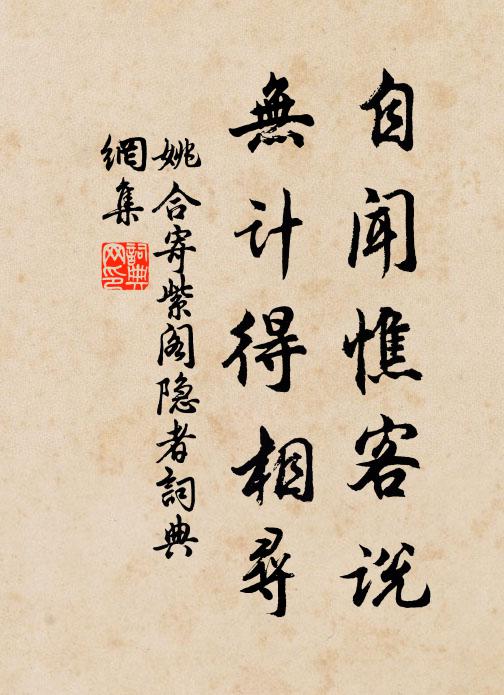 自闻憔客说
無计得相尋
姚合寄紫阁隐者詞典
網集
詞典
网印